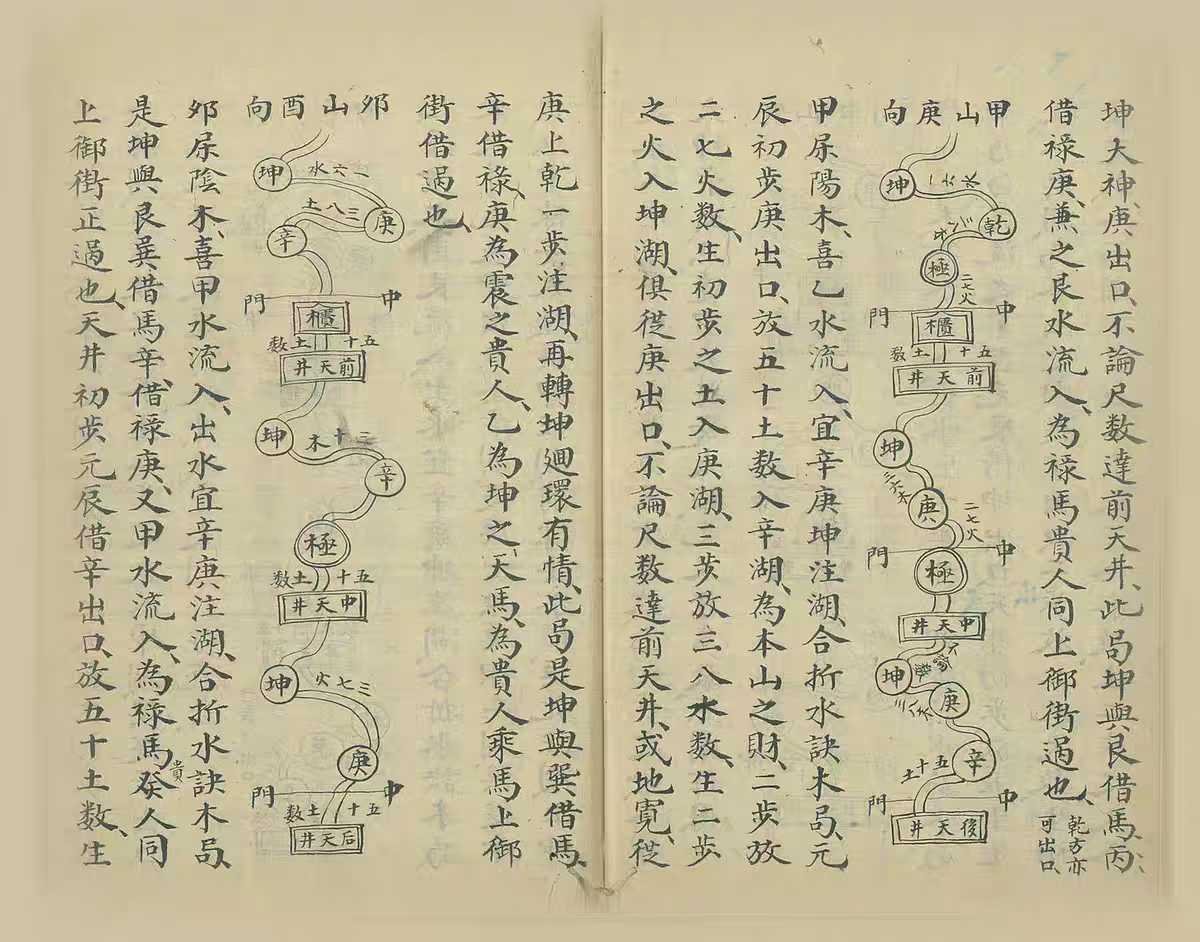 坤大神、庚出口、不論尺数達前天井、此局坤與艮借馬、丙
借禄庚、兼之艮水流入、為禄馬貴人同上御街過也、乾方亦可出口、
甲山庚向
坤
一六水
乾
極
二七火
中門
櫃
五十土数
前天井
坤
三八木
庚
二七火
中門
極
中天井
坤
庚
辛
五十土
中門
後天井
甲屎陽木、喜乙水流入、宜辛庚坤注湖、合折水訣木局、元
辰初步庚出口、放五十土数入辛湖、為本山之財、二步放
二七火数、生初步之土入庚湖、三步放三八水数、生二步
之火入坤湖、俱從庚出口、不論尺数達前天井、或地寬、從
庚上乾一步注湖、再轉坤廻環有情、此局是坤與巽借馬、
辛借禄、庚為震之貴人、乙為坤之、天馬、為貴人乘馬上御
街借過也、
夘山酉向
坤
一六水
庚
三八土
辛
中門
櫃
五十土数
前天井
坤
三十木
辛
極
五十土数
中天井
坤
三七火
庚
中門
五十土数
后天井
夘屎陰木、喜甲水流入、出水宜辛庚注湖、合折水訣木局、
是坤與艮巽借馬辛、借禄庚、又甲水流入、為禄馬貴癸人同
上御街正過也、天井初步元辰借辛出口、放五十土数、生